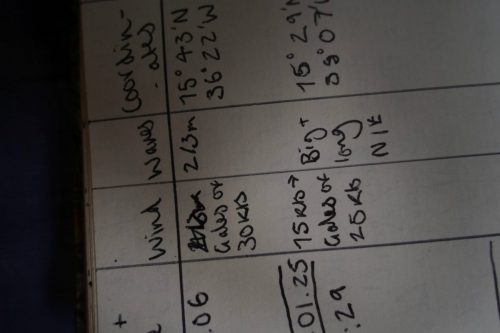 +
Wind
Waves
Coordin-
ates
.06
Gales of
30kts
2/3m
15°43'N
36°22'W
01.25
.29
15kts +
Gales of
25kts
Big +
long
N/K
15°29'N
38°07'